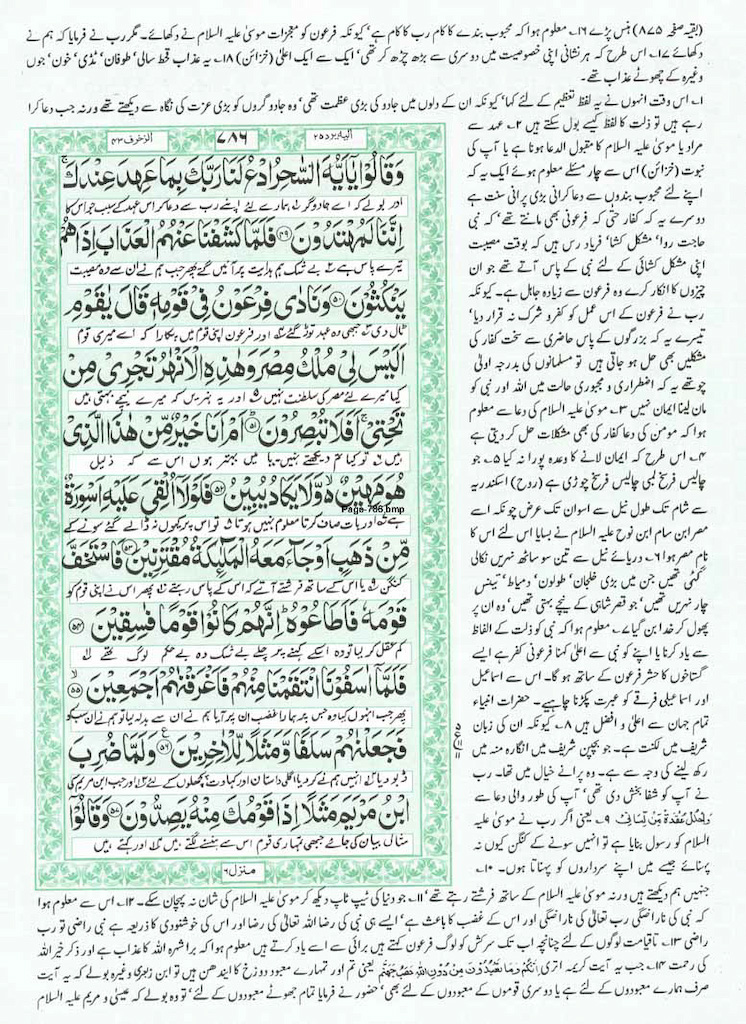 (بقیہ صفحہ ۸۷۵) ہنس پڑے ۱۶۔ معلوم ہوا کہ محبوب بندے کا کام رب کا کام ہے' کیونکہ فرعون کو معجزات موسیٰ علیہ السلام نے دکھائے۔ مگر رب نے فرمایا کہ ہم نے
دکھائے ۱۷۔ اس طرح کہ ہر نشانی اپنی خصوصیت میں دوسری سے بڑھ چڑھ کر تھی' ایک سے ایک اعلیٰ (خزائن) ۱۸۔ یہ عذاب قحط سالی' طوفان' ٹڈی' خون' جوں
وغیرہ کے چھوٹے عذاب تھے۔
۱۔ اس وقت انہوں نے یہ لفظ تعظیم کے لئے کہا' کیونکہ ان کے دلوں میں جادو کی بڑی عظمت تھی' وہ جادوگروں کو بڑی عزت کی نگاہ سے دیکھتے تھے ورنہ جب دعا کرا
رہے ہیں تو ذلت کا لفظ کیسے بول سکتے ہیں ۲۔ عہد سے
مراد یا موسیٰ علیہ السلام کا مقبول الدعا ہونا ہے یا آپ کی
نبوت (خزائن) اس سے چار مسئلے معلوم ہوئے ایک یہ کہ
اپنے لئے محبوب بندوں سے دعا کرانی بڑی پرانی سنت ہے
دوسرے یہ کہ کفار حتیٰ کہ فرعونی بھی مانتے تھے' کہ نبی
حاجت روا' مشکل کشا' فریاد رس ہیں کہ بوقت مصیبت
اپنی مشکل کشائی کے لئے نبی کے پاس آتے تھے جو ان
چیزوں کا انکار کرے وہ فرعون سے زیادہ جاہل ہے۔ کیونکہ
رب نے فرعون کے اس عمل کو کفر و شرک نہ قرار دیا'
تیسرے یہ کہ بزرگوں کے پاس حاضری سے سخت کفار کی
مشکلیں بھی حل ہو جاتی ہیں تو مسلمانوں کی بدرجہ اولیٰ
چوتھے یہ کہ اضطراری و مجبوری حالت میں اللہ اور نبی کو
مان لینا ایمان نہیں ۳۔ موسیٰ علیہ السلام کی دعا سے معلوم
ہوا کہ مومن کی دعا کفار کی بھی مشکلات حل کر دیتی ہے
۴۔ اس طرح کہ ایمان لانے کا وعدہ پورا نہ کیا ۵۔ جو
چالیس فرسخ لمبی چالیس فرسخ چوڑی ہے (روح) اسکندریہ
سے شام تک طول نیل سے اسوان تک عرض چونکہ اسے
مصر ابن سام ابن نوح علیہ السلام نے بسایا اس لئے اس کا
نام مصر ہوا ۶۔ دریائے نیل سے تین سو ساٹھ نہریں نکالی
گئی تھیں جن میں بڑی خلجان' طولون' دمیاط'
چار نہریں تھیں' جو قصر شاہی کے نیچے بہتی تھیں' وہ ان پر
پھول کر خدا بن گیا ۷۔ معلوم ہوا کہ نبی کو ذلت کے الفاظ
سے یاد کرنا یا اپنے کو نبی سے اعلیٰ کہنا فرعونی کفر ہے ایسے
گستاخوں کا حشر فرعون کے ساتھ ہو گا۔ اس سے اسماعیل
اور اسماعیلی فرقے کو عبرت پکڑنا چاہیے۔ حضرات انبیاء
تمام جہان سے اعلیٰ و افضل ہیں ۸۔ کیونکہ ان کی زبان
شریف میں لکنت ہے۔ جو بچپن شریف میں انگارہ منہ میں
رکھ لینے کی وجہ سے ہے۔ وہ پرانے خیال میں تھا۔ رب
نے آپ کو شفا بخش دی تھی' آپ کی طور والی دعا سے
وَاحْلُلْ عُقْدَةً مِّنْ لِّسَانِی ۹۔ یعنی اگر رب نے موسیٰ علیہ
السلام کو رسول بنایا ہے تو انہیں سونے کے کنگن کیوں نہ
پہنائے جیسے میں اپنے سرداروں کو پہناتا ہوں۔ ۱۰۔
الیہ یرد ۲۵
۷۸۶
الزخرف ۴۳
وَقَالُوْا يٰۤاَيُّهَ السّٰحِرُ ادْعُ لَنَا رَبَّكَ بِمَا عَهِدَ عِنْدَكَ ۚ
اور بولے کہ اے جادوگر ہمارے لئے اپنے رب سے دعا کر اس عہد کے سبب جو اس کا
اِنَّنَا لَمُهْتَدُوْنَ ﴿۴۹﴾ فَلَمَّا كَشَفْنَا عَنْهُمُ الْعَذَابَ اِذَا هُمْ
تیرے پاس ہے بے شک ہم ہدایت پر آئیں گے پھر جب ہم نے ان سے وہ مصیبت
يَنْكُثُوْنَ ﴿۵۰﴾ وَنَادٰى فِرْعَوْنُ فِيْ قَوْمِهٖ قَالَ يٰقَوْمِ
ٹال دی جبھی وہ عہد توڑ گئے اور فرعون اپنی قوم میں پکارا کہ اے میری قوم
اَلَيْسَ لِيْ مُلْكُ مِصْرَ وَهٰذِهِ الْاَنْهٰرُ تَجْرِيْ مِنْ
کیا میرے لئے مصر کی سلطنت نہیں اور یہ نہریں کہ میرے نیچے بہتی ہیں
تَحْتِيْ ۚ اَفَلَا تُبْصِرُوْنَ ﴿۵۱﴾ اَمْ اَنَا خَيْرٌ مِّنْ هٰذَا الَّذِيْ
ہیں تو کیا تم دیکھتے نہیں۔ یا میں بہتر ہوں اس سے کہ ذلیل
هُوَ مَهِيْنٌ ۙ وَّلَا يَكَادُ يُبِيْنُ ﴿۵۲﴾ فَلَوْلَاۤ اُلْقِيَ عَلَيْهِ اَسْوِرَةٌ
Page-786.bmp
ہے اور بات صاف کرتا معلوم نہیں ہوتا تو اس پر کیوں نہ ڈالے گئے سونے کے
مِّنْ ذَهَبٍ اَوْ جَآءَ مَعَهُ الْمَلٰٓئِكَةُ مُقْتَرِنِيْنَ ﴿۵۳﴾ فَاسْتَخَفَّ
کنگن یا اس کے ساتھ فرشتے آتے کہ اس کے پاس رہتے پھر اس نے اپنی قوم کو
قَوْمَهٗ فَاَطَاعُوْهُ ؕ اِنَّهُمْ كَانُوْا قَوْمًا فٰسِقِيْنَ ﴿۵۴﴾
کم عقل کر لیا تو وہ اسکے کہنے پر چلے بے شک وہ بے حکم لوگ تھے
فَلَمَّاۤ اٰسَفُوْنَا انْتَقَمْنَا مِنْهُمْ فَاَغْرَقْنٰهُمْ اَجْمَعِيْنَ ﴿۵۵﴾
پھر جب انہوں نے کیا وہ جس پر ہمارا غضب ان پر آیا ہم نے ان سے بدلہ لیا تو ہم نے ان سب کو
فَجَعَلْنٰهُمْ سَلَفًا وَّمَثَلًا لِّلْاٰخِرِيْنَ ﴿۵۶﴾ وَلَمَّا ضُرِبَ
ڈبو دیا انہیں ہم نے کر دیا اگلی داستان اور کہاوت پچھلوں کے لئے اور جب ابن مریم کی
ابْنُ مَرْيَمَ مَثَلًا اِذَا قَوْمُكَ مِنْهُ يَصِدُّوْنَ ﴿۵۷﴾ وَقَالُوْۤا
مثال بیان کی جائے جبھی تمہاری قوم اس سے ہنسنے لگتے ہیں اور کہتے ہیں
منزل ۶
جنہیں ہم دیکھتے ہیں ورنہ موسیٰ علیہ السلام کے ساتھ فرشتے رہتے تھے' ۱۱۔ جو دنیا کی ٹیپ ٹاپ دیکھ کر موسیٰ علیہ السلام کی شان نہ پہچان سکے۔ ۱۲۔ اس سے معلوم ہوا
کہ نبی کی ناراضگی رب تعالیٰ کی ناراضگی اور اس کے غضب کا باعث ہے' ایسے ہی نبی کی رضا اللہ تعالیٰ کی رضا اور اس کی خوشنودی کا ذریعہ ہے نبی راضی تو رب
راضی ۱۳۔ تاقیامت لوگوں کے لئے چنانچہ اب تک سرکش کو لوگ فرعون کہتے ہیں برائی سے اسے یاد کرتے ہیں معلوم ہوا کہ برا شہرہ اللہ کا عذاب ہے اور ذکر خیر اللہ
کی رحمت ۱۴۔ جب یہ آیت کریمہ اتری اِنَّكُمْ وَمَا تَعْبُدُوْنَ مِنْ دُوْنِ اللّٰهِ حَصَبُ جَهَنَّمَ یعنی تم اور تمہارے معبود دوزخ کا ایندھن ہیں تو ابن زبعری وغیرہ بولے کہ یہ آیت
صرف ہمارے معبودوں کے لئے ہی ہے یا دوسری قوموں کے معبودوں کے لئے بھی' حضور نے فرمایا تمام جھوٹے معبودوں کے لئے' تو وہ بولے کہ عیسیٰ و مریم علیہ السلام